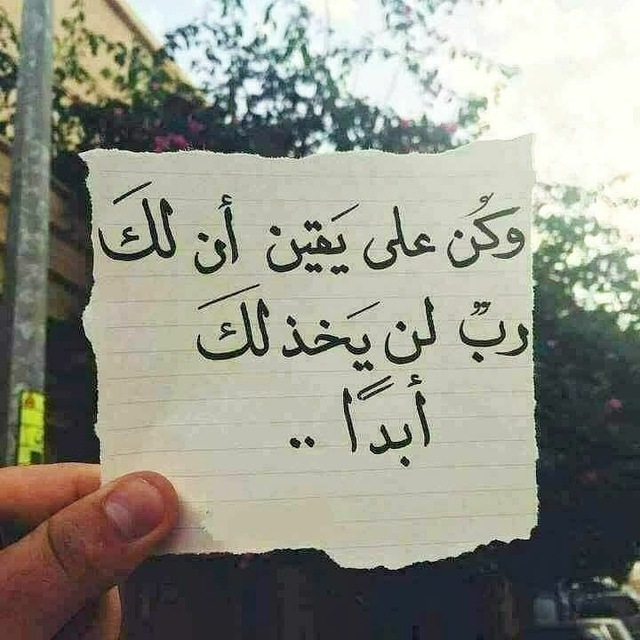 وكُن على يَقين أن لكَ
ربٌّ لن يَخذلكَ
أبدًا ..